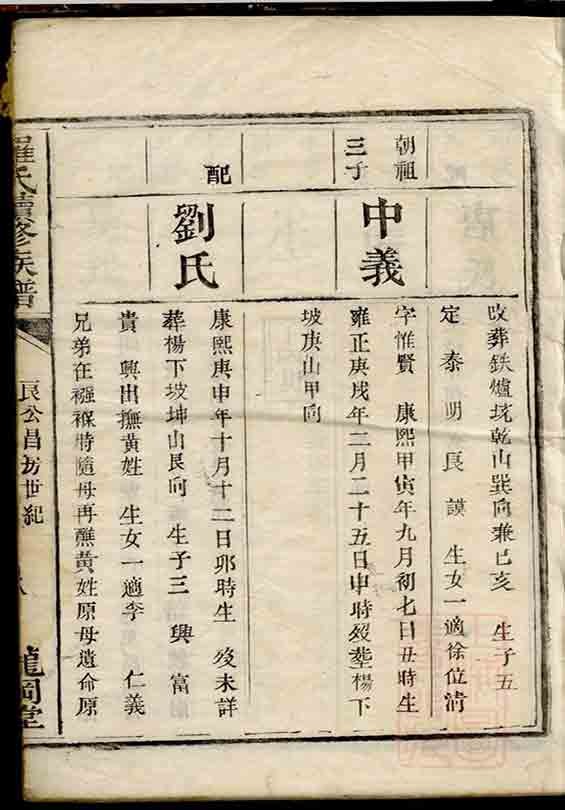 改葬鉄爐垅乾山巽向兼巳亥 生子五
定 泰 明 良 謨 生女一適徐位清
朝祖
三子
中義
字惟賢 康熙甲寅年九月初七日丑時生
雍正庚戌年二月二十五日申時歿塟楊下
坡庚山甲向
配
劉氏
康熙庚申年十月十二日卯時生 歿未詳
葬楊下坡坤山艮向 生子三 興 富
貴 興出撫黃姓 生女一適李 仁義
兄弟在襁褓時隨母再醮黃姓原母遺命原
羅氏續修族譜
良公昌房世紀
龍岡堂